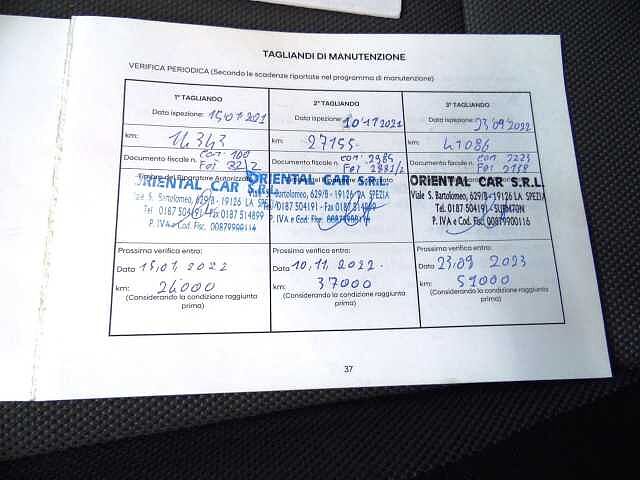 TAGLIANDI DI MANUTENZIONE
VERIFICA PERIODICA (Secondo le scadenze riportate nel programma di manutenzione)
1° TAGLIANDO
Data ispezione: 15/01/2021
km: 14343
Documento fiscale n. con. 100
Fat 32/2
Timbro del Riparatore Autorizzato
ORIENTAL CAR S.R.L.
Viale S. Bartolomeo, 629/B - 19126 LA SPEZIA
Tel. 0187 504191 - Fax 0187 514899
P. IVA e Cod. Fisc. 00879900116
Prossima verifica entro:
Data 15/01/2022
km: 24000
(Considerando la condizione raggiunta
prima)
2° TAGLIANDO
Data ispezione: 10/11/2021
km: 27155
Documento fiscale n. con.
Fat
ORIENTAL CAR S.R.L.
Viale S. Bartolomeo, 629/B - 19126 LA SPEZIA
Tel. 0187 504191 - Fax 0187 514899
P. IVA e Cod. Fisc. 00879900116
Prossima verifica entro:
Data 10,11,2022.
km: 37000
(Considerando la condizione raggiunta
prima)
3° TAGLIANDO
Data ispezione: 23/09/2022
km: 41086
Documento fiscale n. con. 2223
Fat
ORIENTAL CAR S.R.L.
Viale S. Bartolomeo, 629/B - 19126 LA SPEZIA
Tel. 0187 504191 -
P. IVA e Cod. Fisc. 00879900116
Prossima verifica entro:
Data 23,09 2023
km: 51000
(Considerando la condizione raggiunta
prima)
37